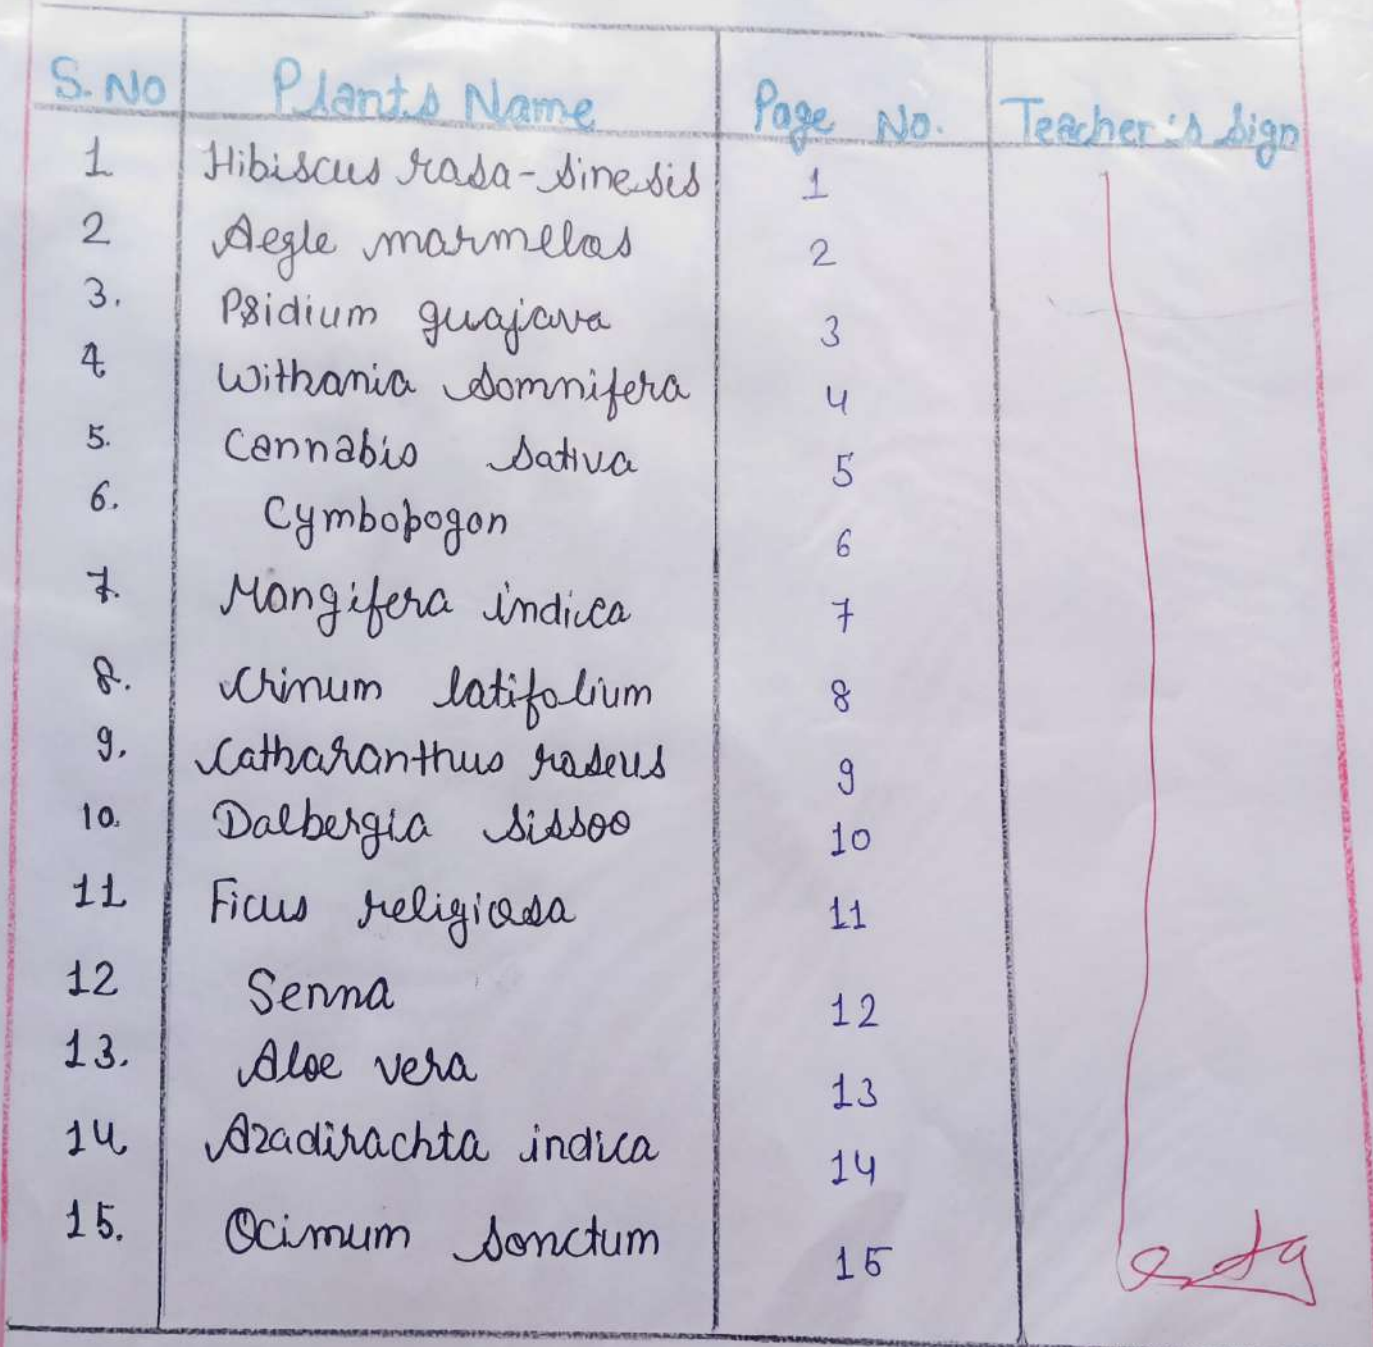 S. No Plants Name Page No. Teacher's Sign
1 Hibiscus rasa-sinesis 1
2 Aegle marmelos 2
3. Psidium guajava 3
4 Withania somnifera 4
5. Cannabis sativa 5
6. Cymbopogon 6
7. Mangifera indica 7
8. Crinum latifolium 8
9. Catharanthus roseus 9
10. Dalbergia sissoo 10
11 Ficus religiosa 11
12 Senna 12
13. Aloe vera 13
14 Azadirachta indica 14
15. Ocimum sonctum 15